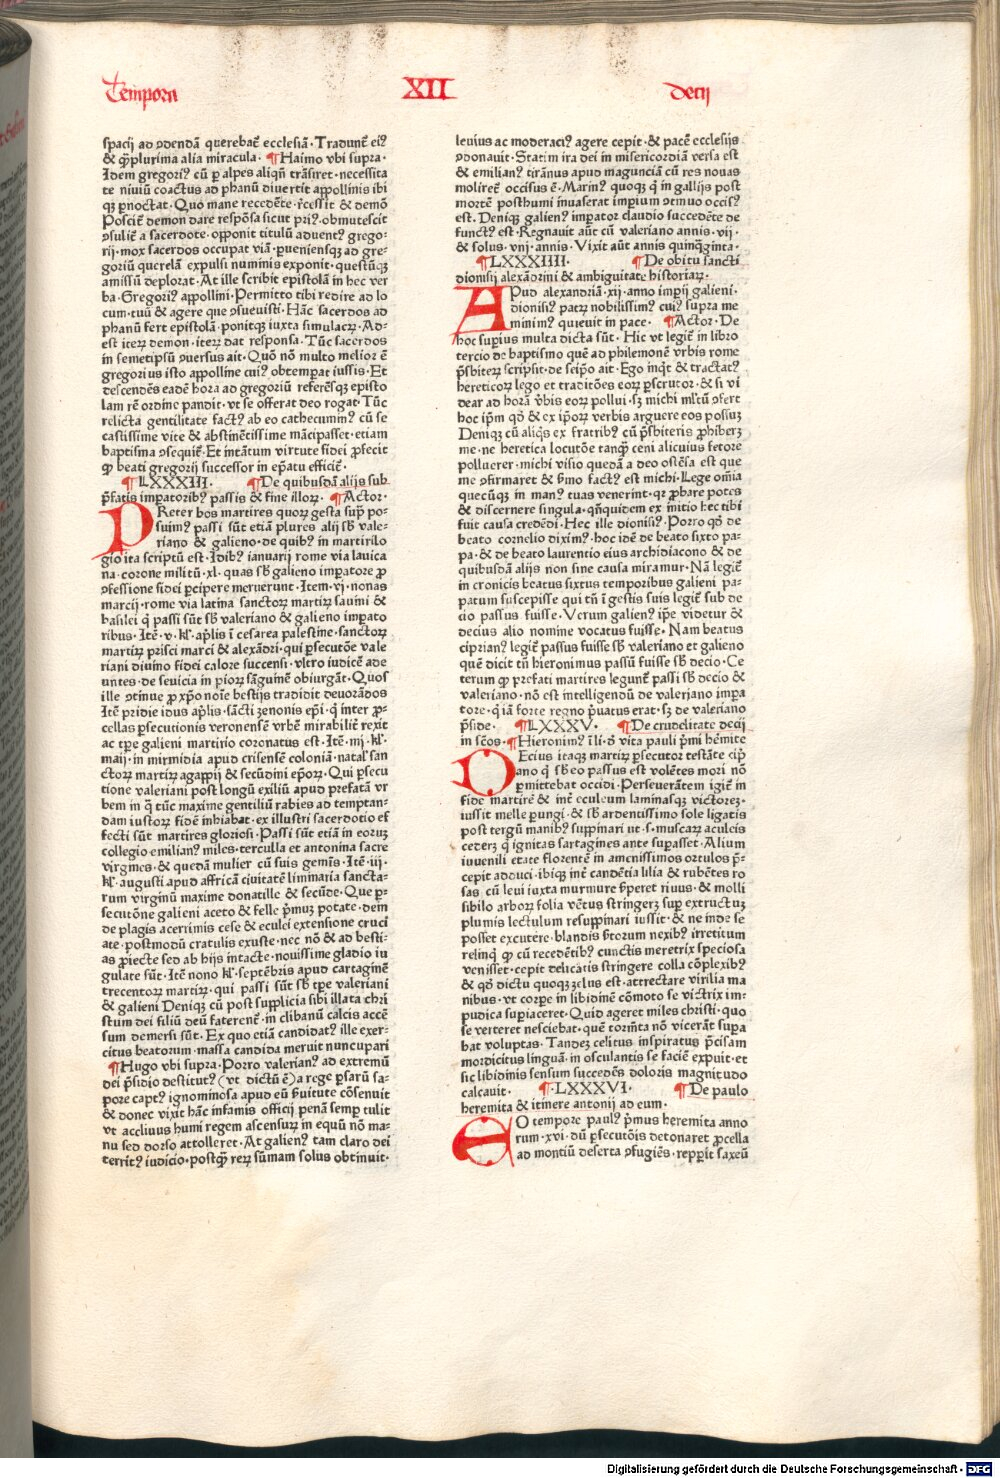 Tempora XII Decij
spacij ad ↄdendã querebat̃ ecclesiã · Tradunt̃ ei⁹
& q̃plurima alia miracula · ¶Haimo vbi supra ·
Idem gregori⁹ cũ ꝑ alpes aliqñ trãsiret · necessita
te niuiũ coactus ad phanũ diuertit appollinis ibi
qꝫ ꝑnoctat · Quo mane recedẽte · r̃cessit & demõ
Poscit̃ demon dare respõsa sicut pri⁹ · obmutescit
ↄsulit̃ a sacerdote · opponit titulũ aduent⁹ grego-
rij · mox sacerdos occupat viã · ꝑueniensqꝫ ad gre-
goriũ querelã expulsi numinis exponit · questũqꝫ
amissũ deplorat · At ille scribit epistolã in hec ver
ba · Gregori⁹ appollini · Permitto tibi redire ad lo
cum tuũ & agere que ↄsueuisti · Hãc sacerdos ad
phanũ fert epistolã · ponitqꝫ iuxta simulacꝝ · Ad-
est iteꝝ demon · iteꝝ dat responsa · Tũc sacerdos
in semetipsũ ↄuersus ait · Quõ nõ multo melior ẽ
gregorius isto appolline cui⁹ obtemperat iussis · Et
descendẽs eadẽ hora ad gregoriũ referẽsqꝫ episto
lam rẽ ordine pandit · vt se offerat deo rogat · Tũc
relicta gentilitate fact⁹ ab eo cathecumin⁹ cũ se
castissime vite & abstinẽtissime mãcipasset · etiam
baptisma ↄsequit̃ · Et intãtum virtute fidei ꝓfecit
ꝙ beati gregorij successor in ep̃atu efficit̃ ·
¶LXXXIII · ¶De quibusdã alijs sub
p̃fatis impatorib⁹ passis & fine illoꝝ · ¶Actor ·
PReter hos martires quoꝝ gesta sup̃ po-
suim⁹ passi sũt etiã plures alij sb̃ vale-
riano & galieno · de quib⁹ in martirilo
gio ita scriptũ est · Idib⁹ ianuarij rome via lauica
na · corone militũ · xl · quas sb̃ galieno imperatore ꝓ
ↄfessione fidei ꝑcipere meruerunt · Item · vj · nonas
marcij · rome via latina sanctoꝝ martiꝝ sauini &
basilei q̃ passi sũt sb̃ valeriano & galieno impato
ribus · Itẽ · v · kl̃ · ap̃lis ĩ cesarea palestine · sanctoꝝ
martiꝝ prisci marci & alexãdri · qui ꝑsecutõe vale
riani diuino fidei calore succensi · vltro iudicẽ ade
untes · de seuicia in pioꝝ sãguinẽ obiurgãt · Quos
ille ↄtinue ꝓ xp̃o noĩe bestijs tradidit deuorãdos
Itẽ pridie idus ap̃lis · sãcti zenonis ep̃i · q̃ inter ꝓ-
cellas ꝑsecutionis veronensẽ vrbẽ mirabilit̃ rexit
ac tp̃e galieni martirio coronatus est · Itẽ · iij · kl̃ ·
maij · in mirmidia apud crisensẽ coloniã · natal̃ san
ctoꝝ martiꝝ agappij & secũdini ep̃oꝝ · Qui ꝑsecu
tione valeriani post longũ exiliũ apud prefatã vr
bem in q̃ tũc maxime gentiliũ rabies ad temptan-
dam iustoꝝ fidẽ inhiabat · ex illustri sacerdotio ef
fecti sũt martires gloriosi · Passi sũt etiã in eoruꝫ
collegio emilian⁹ miles · terculla et antonina sacre
virgines · & quedã mulier cũ suis gemĩs · Itẽ · iij ·
kl̃ · augusti apud affricã ciuitatẽ liminaria sancta-
rum virginũ maxime donatille & secũde · Que ꝑ-
secutõne galieni aceto & felle p̃muꝫ potate · dein
de plagis acerrimis cese & eculei extensione cruci
ate · postmodũ cratulis exuste · nec nõ & ad besti-
as ꝓiecte sed ab hijs intacte · nouissime gladio iu
gulate sũt · Itẽ nono kl̃ · septẽbris apud cartaginẽ
trecentoꝝ martiꝝ · qui passi sũt sb̃ tp̃e valeriani
& galieni Deniqꝫ cũ post supplicia sibi illata chri
stum dei filiũ deũ faterent̃ · in clibanũ calcis accẽ
sum demersi sũt · Ex quo etiã candidat⁹ ille exer-
citus beatorum · massa candida meruit nuncupari
¶Hugo vbi supra · Porro valerian⁹ ad extremũ
dei p̃sidio destitut⁹ (vt dictũ ẽ) a rege ꝑsarũ sa-
pore capt⁹ ignominosa apud eũ s̃uitute cõsenuit
& donec vixit hãc infamis officij penã semp tulit
vt accliuus humi regem ascensuꝝ in equũ nõ ma-
nu sed dorso attolleret · At galien⁹ tam claro dei
territ⁹ iudicio · postq̃ reꝝ sũmam solus obtinuit ·
leuius ac moderaci⁹ agere cepit · & pacẽ ecclesijs
ↄdonauit · Statim ira dei in misericordiã versa est
& emilian⁹ tirãnus apud magunciã cũ res nouas
moliret̃ occisus ẽ · Marin⁹ quoqꝫ q̃ in gallijs post
mortẽ posthumi inuaserat imperium ↄtinuo occis⁹
est · Deniqꝫ galien⁹ imperator claudio succedẽte de
funct⁹ est · Regnauit aũt cũ valeriano annis · vij ·
& solus · viij · annis · Vixit aũt annis quinq̃ginta ·
¶LXXXIIII · ¶De obitu sancti
dionisij alexãdrini & ambiguitate historiaꝝ ·
APud alexandriã · xij · anno imperij galieni ·
dionisi⁹ patꝝ nobilissim⁹ cui⁹ supra me
minim⁹ quieuit in pace · ¶Actor · De
hoc superius multa dicta sũt · Hic vt legit̃ in libro
tercio de baptismo quẽ ad philemonẽ vrbis rome
p̃sbiteꝝ scripsit · de seip̃o ait · Ego inq̃t & tractat⁹
hereticoꝝ lego et traditões eoꝝ ꝑscrutor · & si vi
dear ad horã v̾bis eoꝝ pollui · sꝫ michi ml̃tũ ↄfert
hoc ip̃m qd̃ & ex ip̃oꝝ verbis arguere eos possuꝫ
Deniqꝫ cũ aliq̃s ex fratrib⁹ cũ p̃sbiteris ꝓhiberꝫ
me · ne heretica locutõe tanq̃ ceni alicuius fetore
polluerer · michi visio quedã a deo ostẽsa est que
me ↄfirmaret & s̾mo fact⁹ est michi · Lege om̃ia
quecũqꝫ in man⁹ tuas venerint · qr ꝓbare potes
& discernere singula · qñquidem ex initio hec tibi
fuit causa credẽdi · Hec ille dionisi⁹ · Porro qd̃ de
beato cornelio dixim⁹ · hoc idẽ de beato sixto pa-
pa · & de beato laurentio eius archidiacono & de
quibusdã alijs non sine causa miramur · Nã legit̃
in cronicis beatus sixtus temporibus galieni pa-
patum suscepisse qui tñ ĩ gestis suis legit̃ sub de
cio passus fuisse · Verum galien⁹ ip̃e videtur &
decius alio nomine vocatus fuisse · Nam beatus
ciprian⁹ legit̃ passus fuisse sb̃ valeriano et galieno
quẽ dicit tñ hieronimus passũ fuisse sb̃ decio · Ce
terum ꝙ prefati martires legunt̃ passi sb̃ decio &
valeriano · nõ est intelligendũ de valeriano impera
tore · q̃ iã forte regno p̃uatus erat · sꝫ de valeriano
p̃side · ¶LXXXV · ¶De crudelitate decij
in sc̃os · ¶Hieronim⁹ ĩ li · d̾ vita pauli p̃mi h̾emite
DEcius itaqꝫ martiꝝ ꝑsecutor testãte cip̃
ano q̃ sb̃ eo passus est volẽtes mori nõ
ꝑmittebat occidi · Perseuerãtem igit̃ in
fide martirẽ & int̾ eculeum laminasqꝫ victoreꝫ ·
iussit melle ꝑungi · & sb̃ ardentissimo sole ligatis
post tergũ manib⁹ suppinari ut · s · muscaꝝ aculeis
cederꝫ q̃ ignitas sartagines ante superasset · Alium
iuuenili etate florentẽ in amenissimos ortulos p̃-
cepit adduci · ibiqꝫ int̾ candẽtia lilia & rubẽtes ro
sas cũ leui iuxta murmure s̾peret riuus · & molli
sibilo arboꝝ folia vẽtus stringerꝫ sup̃ extructuꝫ
plumis lectulum resuppinari iussit · & ne inde se
posset excutere · blandis s̾torum nexib⁹ irretitum
relinq̃ ꝙ cũ recedẽtib⁹ cunctis meretrix speciosa
venisset · cepit delicatis stringere colla cõplexib⁹
& qd̃ dictu quoqꝫ scelus est · attrectare virilia ma
nibus · vt corpe in libidinẽ cõmoto se victrix im-
pudica superiaceret · Quid ageret miles christi · quo
se verteret nesciebat · quẽ torm̃ta nõ vicerãt supera
bat voluptas · Tandeꝫ celitus inspiratus p̃cisam
mordicitus linguã · in osculantis se faciẽ expuit · et
sic libidinis sensum succedẽs doloris magnitudo
calcauit · ¶LXXXVI · ¶De paulo
heremita & itinere antonij ad eum ·
EO tempore paul⁹ p̃mus heremita anno
rum · xvi · dũ ꝑsecutõis detonaret ꝓcella
ad montiũ deserta ↄfugiẽs · repperit saxeũ
Digitalisierung gefördert durch die Deutsche Forschungsgemeinschaft - DFG